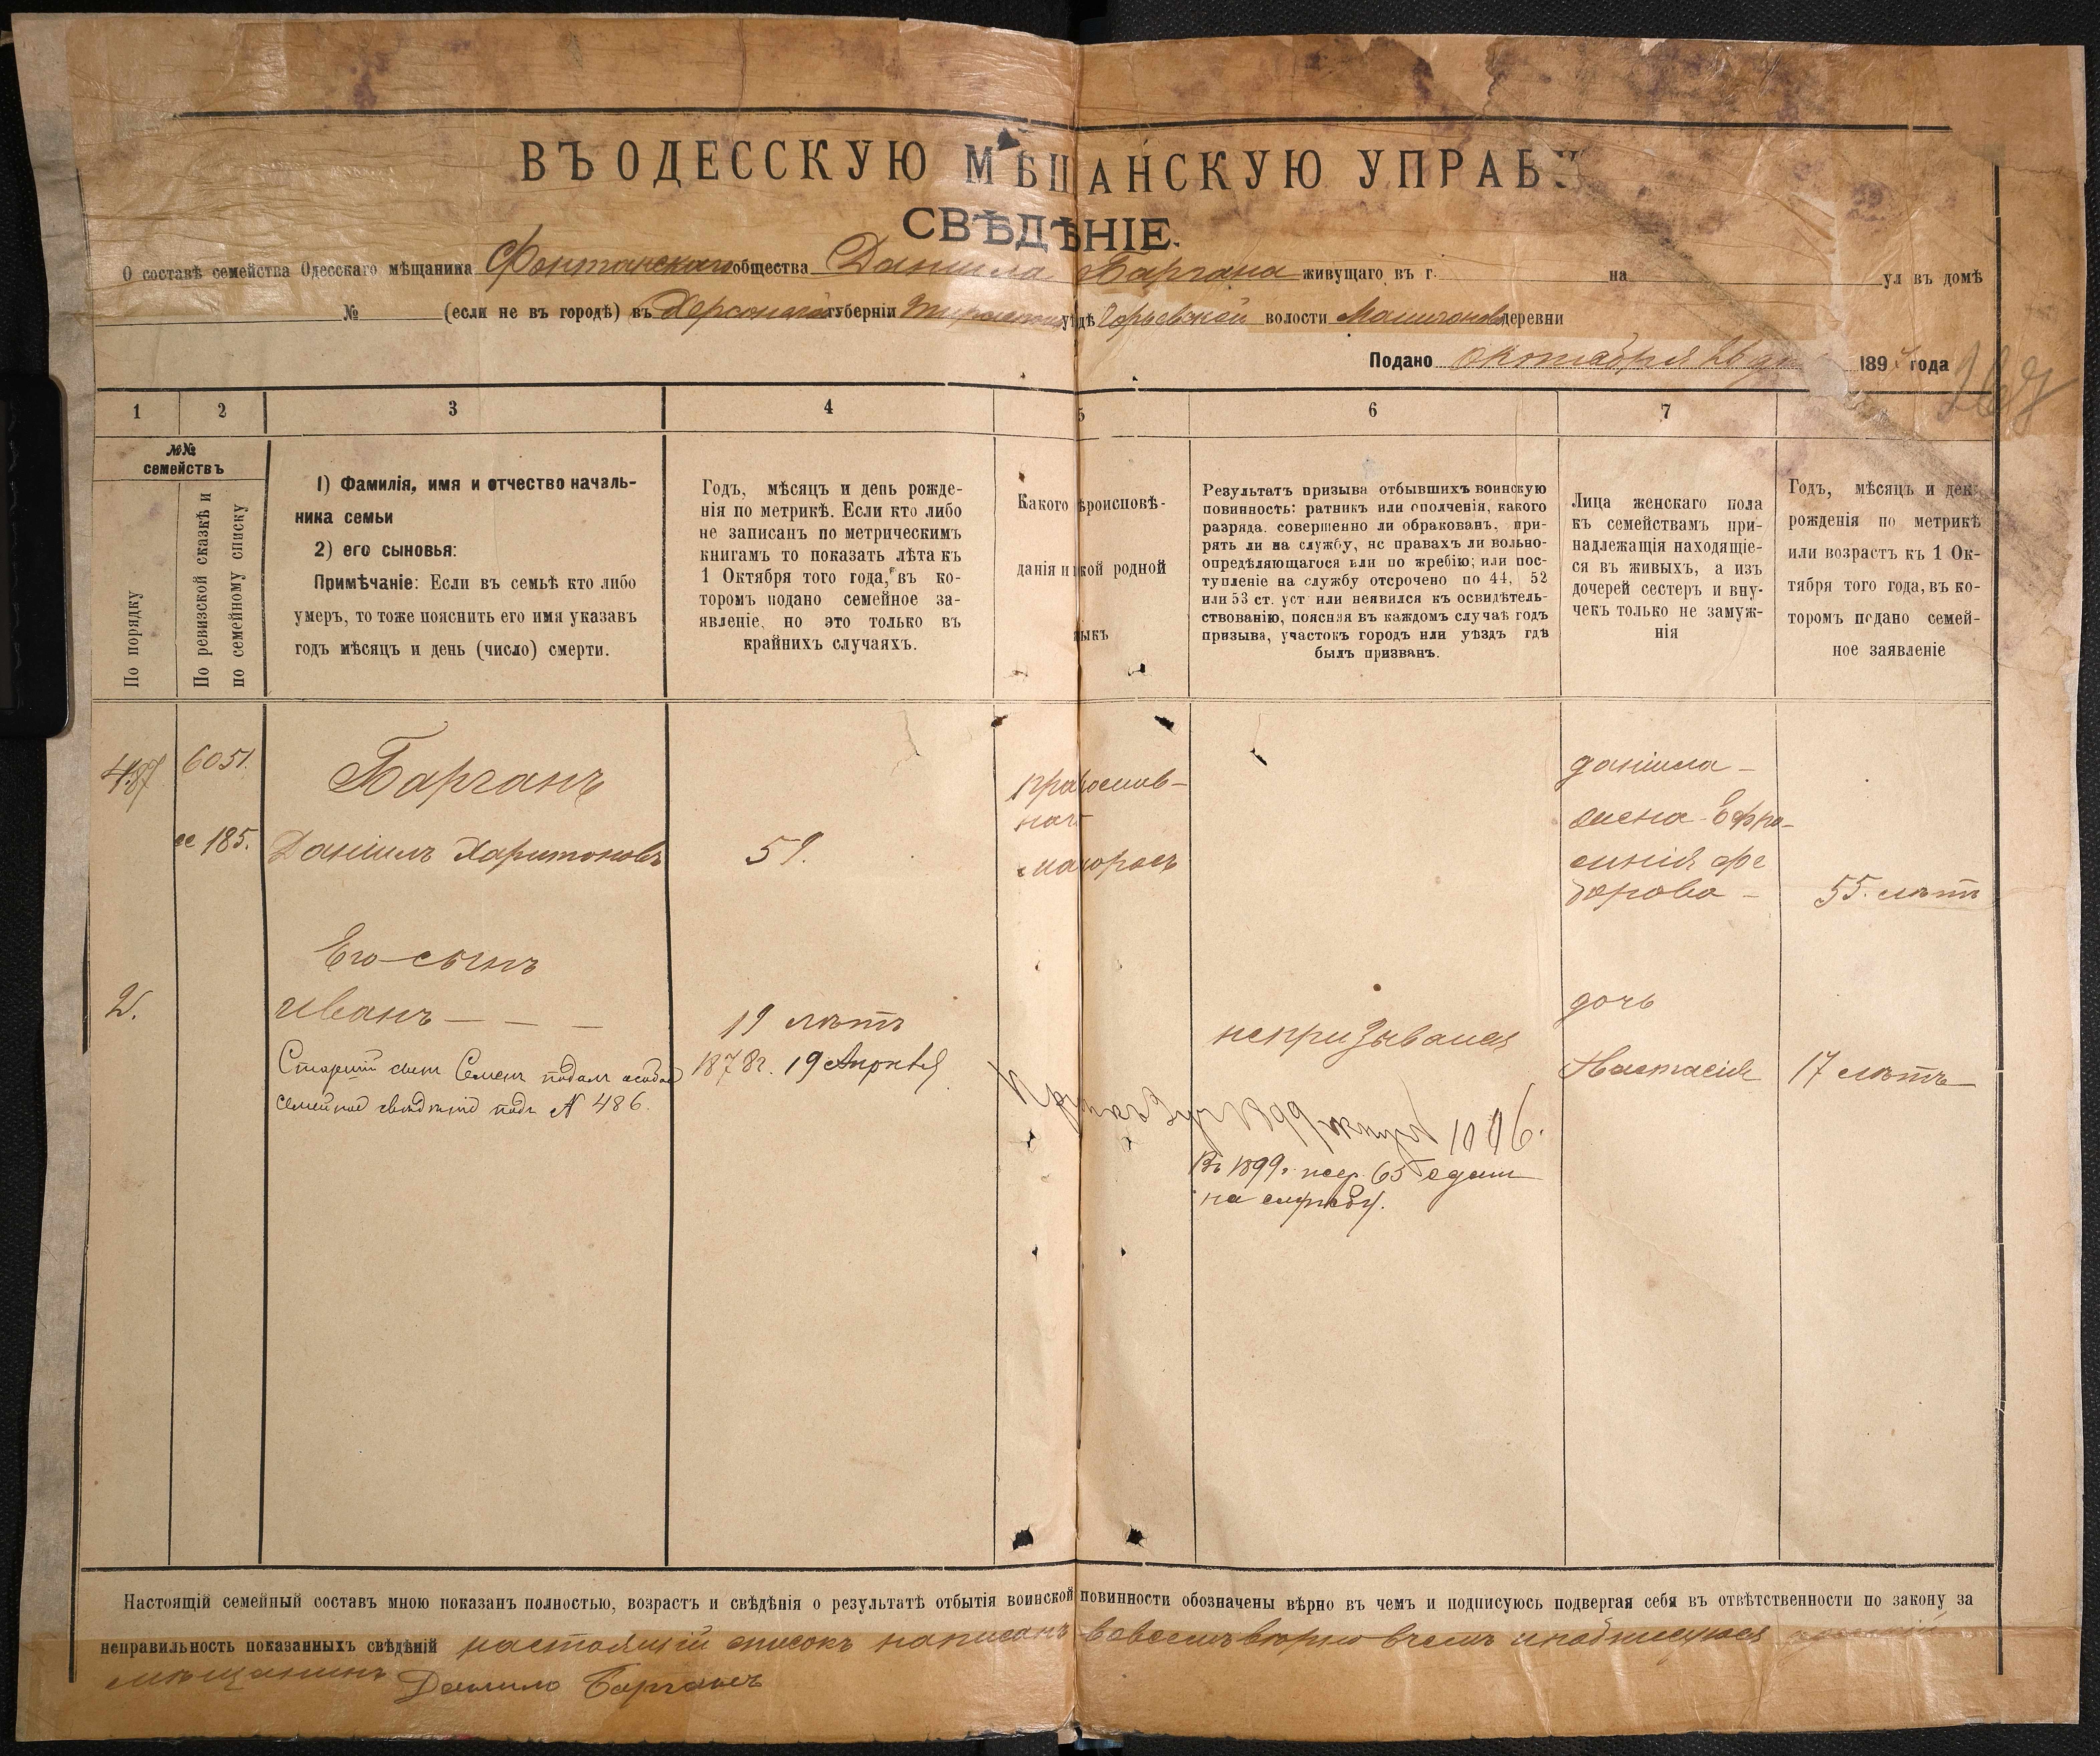 ВЪ ОДЕССКУЮ МѢЩАНСКУЮ УПРАВ
СВѢДѢНІЕ.
О составѣ семейства Одесскаго мѣщанина Фонтанскаго общества Данила Баргана живущаго въ г. на ул въ домѣ
№ (если не въ городѣ) въ Херсонской губерніи уѣздѣ волости деревни
Подано октября 26 дня 189 года
1 2 3 4 5 6 7
№№
семействъ
По порядку
По ревизской сказкѣ и
по семейному списку
1) Фамилія, имя и отчество началь-
ника семьи
2) его сыновья:
Примѣчаніе: Если въ семьѣ кто либо
умеръ, то тоже пояснить его имя указавъ
годъ мѣсяцъ и день (число) смерти.
Годъ, мѣсяцъ и день рожде-
нія по метрикѣ. Если кто либо
не записанъ по метрическимъ
книгамъ то показать лѣта къ
1 Октября того года, въ ко-
торомъ подано семейное за-
явленіе, но это только въ
крайнихъ случаяхъ.
Какого вѣроисповѣ-
данія и кой родной
языкъ
Результатъ призыва отбывшихъ воинскую
повинность: ратникъ или ополченія, какого
разряда. совершенно ли обракованъ, при-
рятъ ли на службу, нс правахъ ли вольно-
опредѣляющагося или по жребію; или пос-
тупленіе на службу отсрочено по 44, 52
или 53 ст. уст или неявился къ освидѣтель-
ствованію, поясняя въ каждомъ случаѣ годъ
призыва, участокъ городъ или уѣздъ гдѣ
былъ призванъ.
Лица женскаго пола
къ семействамъ при-
надлежащія находящіе-
ся въ живыхъ, а изъ
дочерей сестеръ и вну-
чекъ только не замуж-
нія
Годъ, мѣсяцъ и ден
рожденія по метрикѣ
или возрастъ къ 1 Ок-
тября того года, въ ко-
торомъ подано семей-
ное заявленіе
487 6051.
Барганъ
185. Даніилъ Харитоновъ 59.
православ-
ное
малоросъ
даніила
жена Ефро-
синія Фе
дорова 55. лѣтъ
Его сынъ
2. Иванъ — — — 19 лѣтъ
1878г. 19 Апрѣля
непризывался
дочь
Настасія 17 лѣтъ
Старшій сынъ Семенъ подалъ особое
семейное свѣдѣніе подъ № 486.
1899
Въ 1899г. жер. 65 сданъ
на службу.
Настоящій семейный составъ мною показанъ полностью, возрастъ и свѣдѣнія о результатѣ отбытія воинской повинности обозначены вѣрно въ чемъ и подписуюсь подвергая себя въ отвѣтственности по закону за
неправильность показанныхъ свѣдѣній настоящій списокъ написанъ вовсемъ вѣрно вчемъ иподписуюся
мѣщанинъ Данило Барганъ